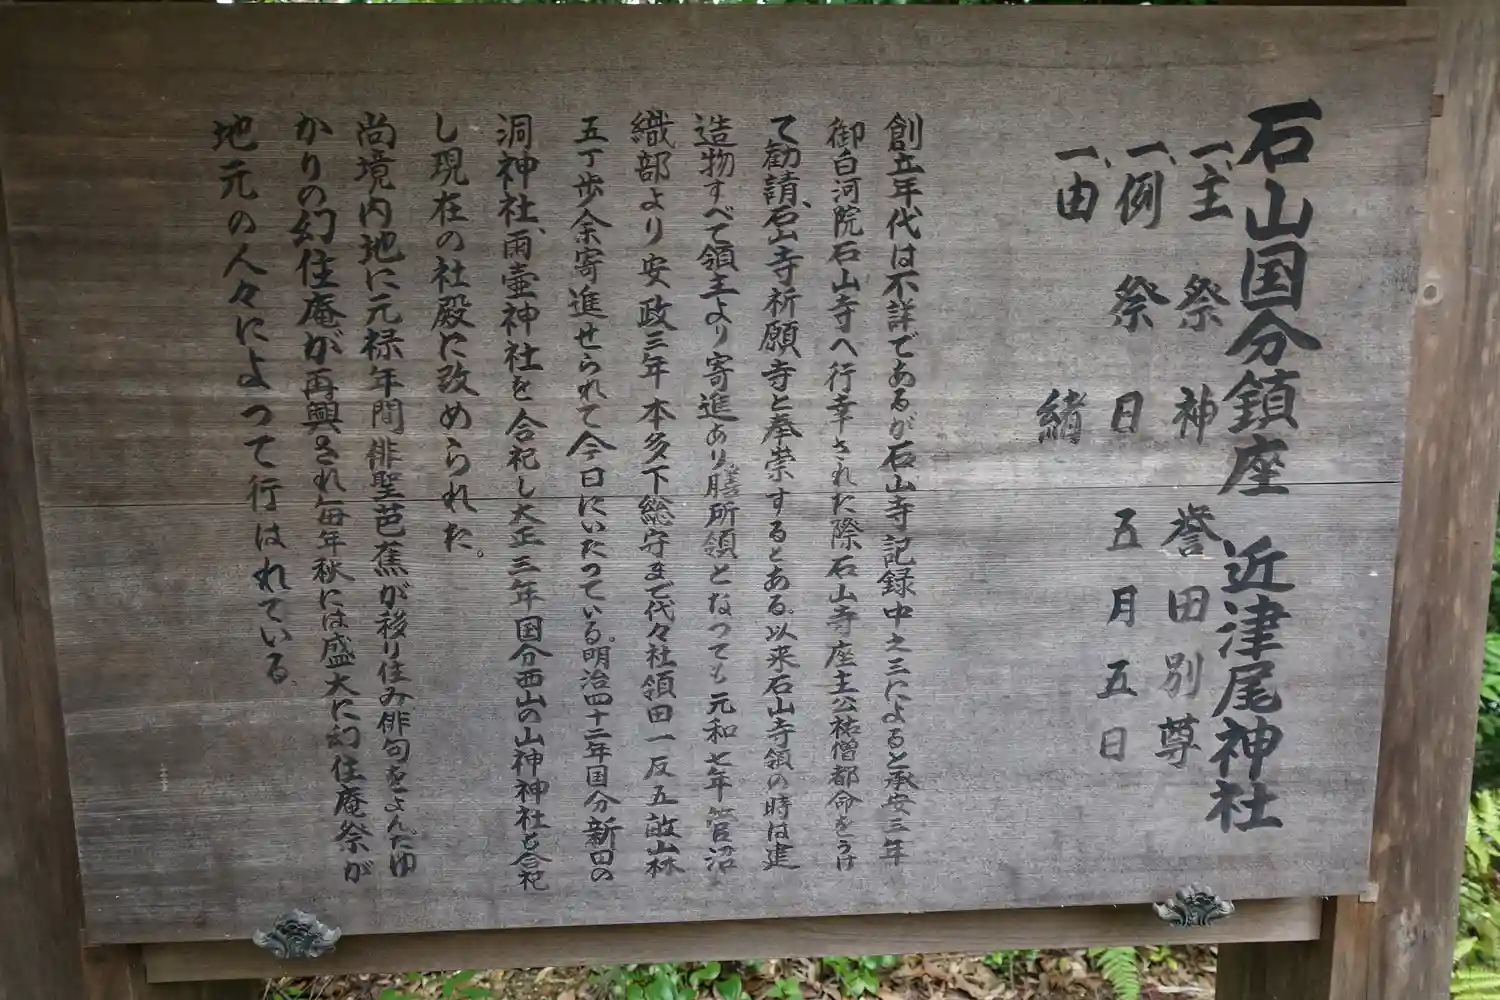 石山国分鎮座 近津尾神社
一、主祭神 誉田別尊
一、例祭日 五月五日
一、由緒
創立年代は不詳であるが石山寺記録中之三によると承安三年
御白河院石山寺へ行幸された際石山寺座主公祐僧都命をうけ
て勧請、石山寺祈願寺と奉崇するとある。以来石山寺領の時は建
造物すべて領主より寄進あり膳所領となつても元和七年菅沼
織部より安政三年本多下総守まで代々社領田一反五畝山林
五丁歩余寄進せられて今日にいたつている。明治四十二年国分新田の
洞神社、雨壷神社を合祀し大正三年国分西山の山神神社も合祀
し現在の社殿に改められた。
尚境内地に元禄年間俳聖芭蕉が移り住み俳句をよんだゆ
かりの幻住庵が再興され毎年秋には盛大に幻住庵祭が
地元の人々によつて行はれている。